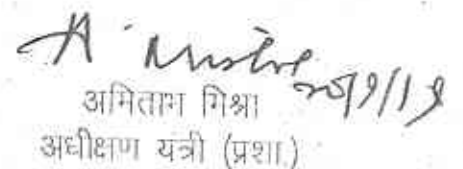 A. Mishra
अमिताभ मिश्रा
अधीक्षण यंत्री (प्रशा.)